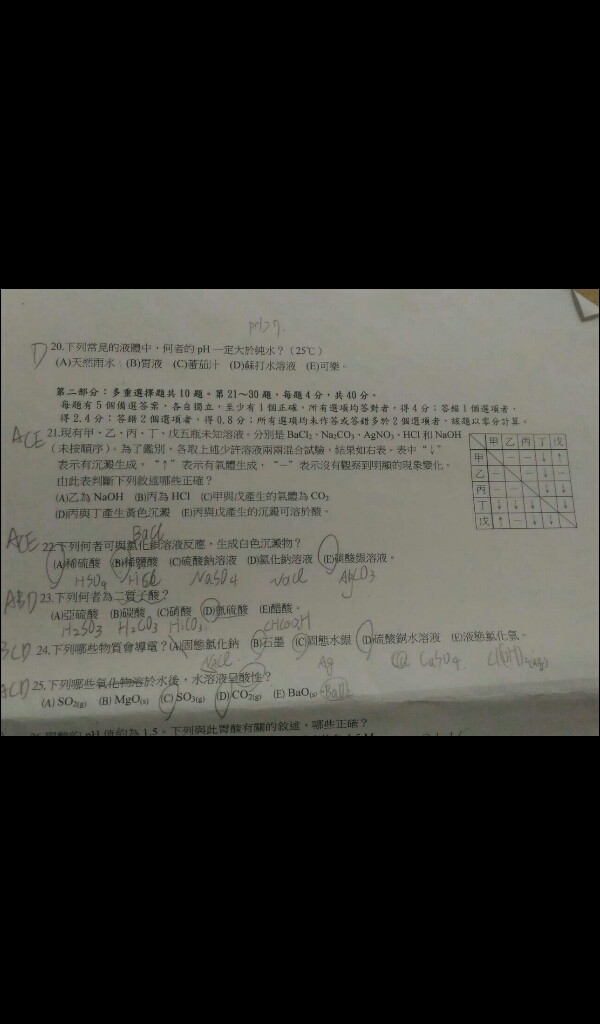 pH>7.
D 20.下列常見的液體中，何者的 pH 一定大於純水？（25℃）
(A)天然雨水 (B)胃液 (C)蕃茄汁 (D)蘇打水溶液 (E)可樂。
第二部分：多重選擇題共 10 題。第 21～30 題，每題 4 分，共 40 分。
每題有 5 個備選答案，各自獨立，至少有 1 個正確，所有選項均答對者，得 4 分；答錯 1 個選項者，
得 2.4 分；答錯 2 個選項者，得 0.8 分；所有選項均未作答或答錯多於 2 個選項者，該題以零分計算。
ACE 21.現有甲、乙、丙、丁、戊五瓶未知溶液。分別是 BaCl₂、Na₂CO₃、AgNO₃、HCl 和 NaOH
（未按順序）。為了鑑別，各取上述少許溶液兩兩混合試驗，結果如右表。表中“↓”
表示有沉澱生成，“↑”表示有氣體生成，“－”表示沒有觀察到明顯的現象變化。
由此表判斷下列敘述哪些正確？
(A)乙為 NaOH (B)丙為 HCl (C)甲與戊產生的氣體為 CO₂
(D)丙與丁產生黃色沉澱 (E)丙與戊產生的沉澱可溶於酸。
甲 乙 丙 丁 戊
甲 － － ↓ ↑
乙 － － ↓ －
丙 － － ↓ ↓
丁 ↓ ↓ ↓ ↓
戊 ↑ － ↓ ↓
BaCl
ACE 22.下列何者可與氯化鋇溶液反應，生成白色沉澱物？
(A)稀硫酸 (B)稀鹽酸 (C)硫酸鈉溶液 (D)氯化鈉溶液 (E)硝酸銀溶液。
HSO₄ HCl NaSO₄ NaCl
ABD 23.下列何者為二質子酸？
(A)亞硫酸 (B)碳酸 (C)硝酸 (D)氫硫酸 (E)醋酸。
H₂SO₃ H₂CO₃ CH₃COOH
BCD 24.下列哪些物質會導電？(A)固態氯化鈉 (B)石墨 (C)固態水銀 (D)硫酸銅水溶液 (E)液態氯化氫。
NaCl Ag CaSO₄
ACD 25.下列哪些氧化物溶於水後，水溶液呈酸性？
(A) SO₂(g) (B) MgO(s) (C) SO₃(g) (D) CO₂(g) (E) BaO(s)
的 pH 值約為 1.5。下列與此胃酸有關的敘述，哪些正確？